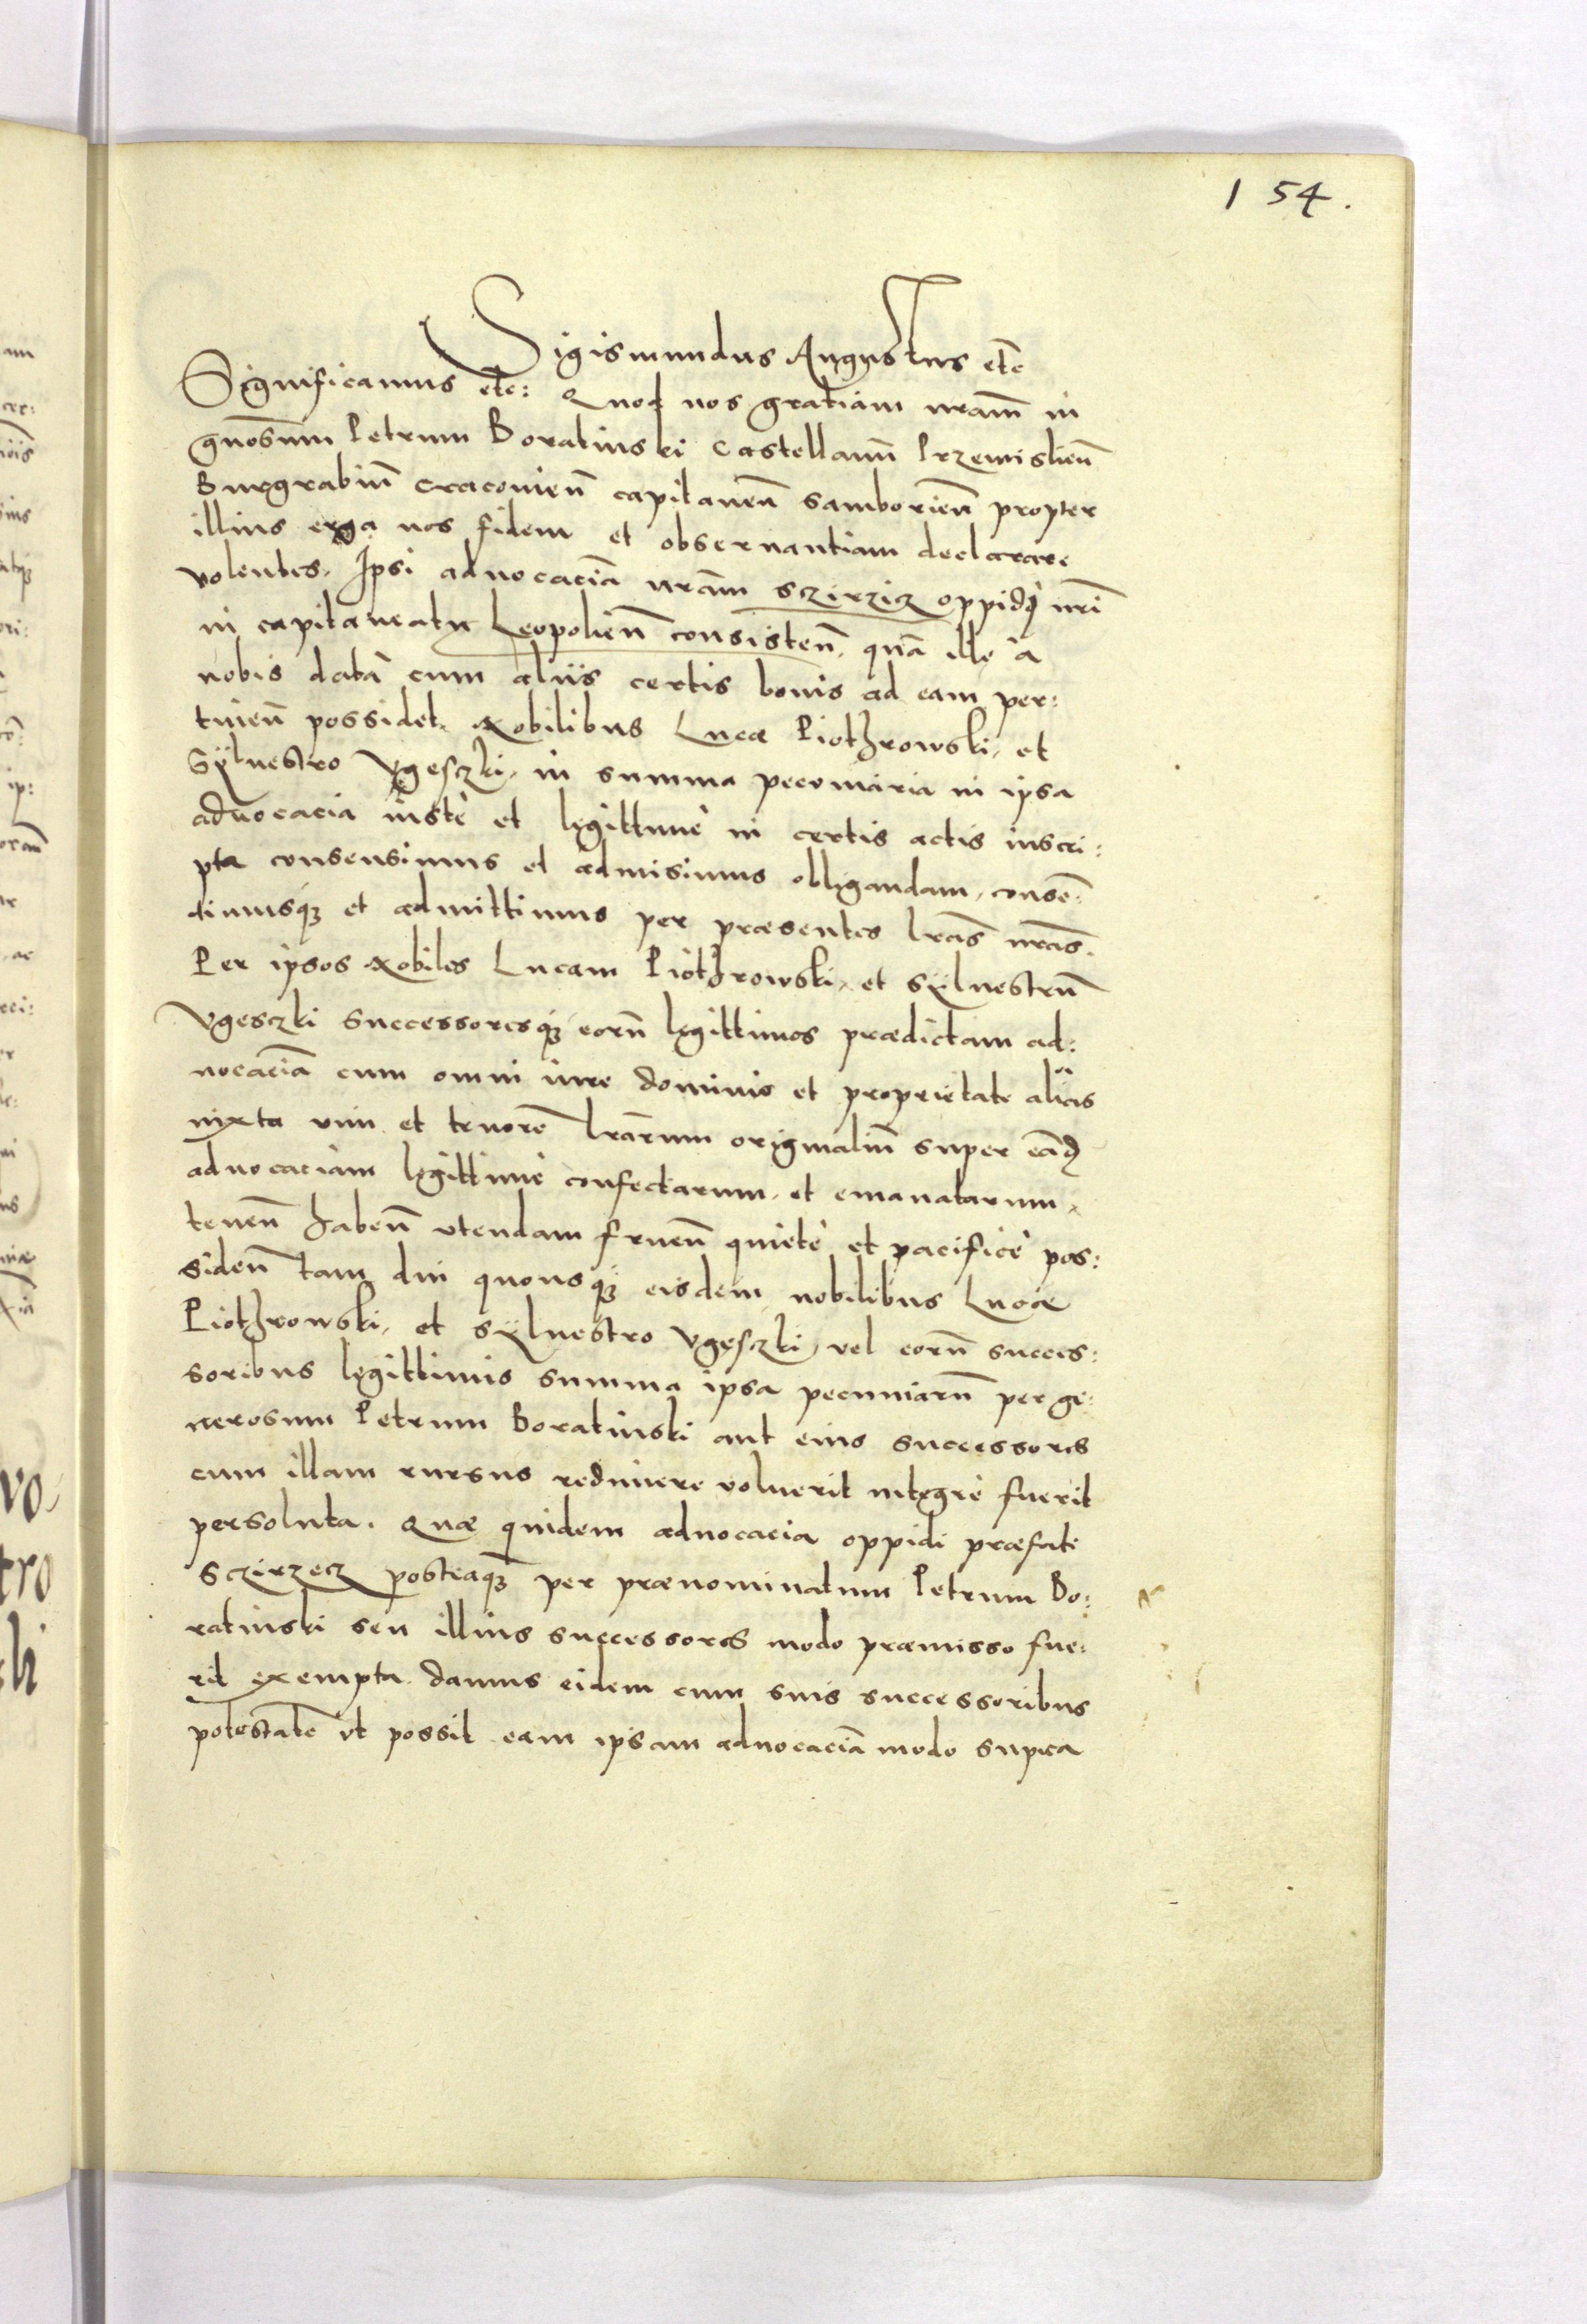 154.
Sigismundus Augustus etc̄
Significamus etc: Quod nos gratiam nram̄ in
gnosum̄ Petrum Boratinski Castellanū Przemislien̄
Burgrabiū Cracovien̄ capitaneū samborien̄ propter
illius erga nos fidem et observantiam declarare
volentes. Ipsi advocaciā nrām sczirzicz oppidi nrī
in capitaneatu Leopolien̄ consisten̄, quā ille a
nobis datā cum aliis certis bonis ad eam per:
tinen̄ possidet, Nobilibus Lucæ Piothrowski, et
Sÿlvestro Vgesczki, in summa pecuniaria in ipsa
advocacia iustè et legittimè in certis actis inscri:
pta consensimus et admisimus obligandam, consē:
timusq́ꝫ et admittimus per præsentes lrās nrās.
Per ipsos Nobiles Lucam Piothrowski, et Sÿlvestrū
Vgesczki successoresq́ꝫ eorū legittimos prædictam ad:
vocaciā cum omni iure dominio et proprietate alias
iuxta vim et tenorē lrārum originaliū super eād
advocaciam legittimè confectarum, et emanatarum,
tenen̄ haben̄ vtendam fruen̄ quietè et pacificè pos:
siden̄ tam diu quousq́ꝫ eisdem nobilibus Lucæ
Piothrowski, et Sÿlvestro Vgesczki, vel eorū succes:
soribus legittimis summa ipsa pecuniarū per ge:
nerosum Petrum Boratinski aut eius successores
cum illam rursus redimere voluerit integrè fuerit
persoluta. Quæ quidem advocacia oppidi præfati
Sczirzecz posteaq́ꝫ per prænominatum Petrum Bo:
ratinski seu illius successores modo præmisso fue:
rit exempta damus eidem cum suis successoribus
potestatē vt possit eam ipsam advocaciā modo supra